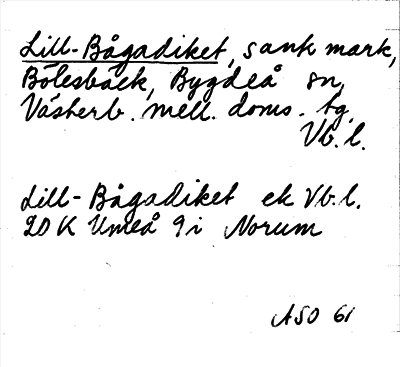 Lill-Bågadiket, sank mark,
Bölesbäck, Bygdeå sn,
Västerb. mell. doms. tg.
Vb. l.
Lill-Bågadiket ek Vb. l.
20 K Umeå 9 i Norum
ASO 61